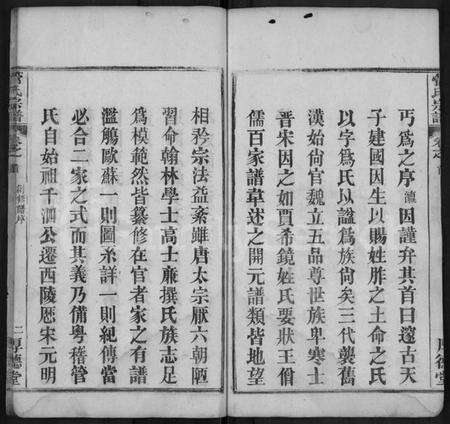 丐為之序瀛因謹弁其首曰邃古天
子建國因生以賜姓胙之土命之氏
以字為氏以謚為族尚矣三代襲舊
漢始尙官魏立五品尊世族卑寒士
晉宋因之如賈希鏡姓氏要狀王僧
儒百家譜草述之開元譜類皆地望
相矜宗法益紊雖唐太宗厭六朝陋
習命翰林學士高士廉撰氏族志足
為模範然皆纂修在官者家之有譜
濫觴歐蘇一則圖系詳一則紀傳當
必合二家之式而其義乃備粵稽管
氏自始祖千泗公遷西陵歷宋元明
管氏宗譜
卷之首
創修譜序
二
厚德堂